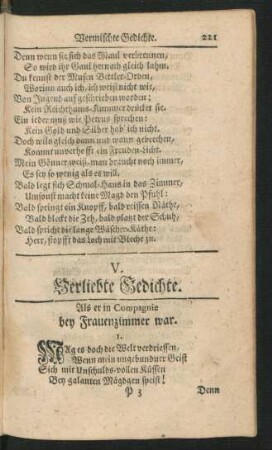 Vermischte Gedichte. 221
Denn wenn sie sich das Maul verbrennen,
So wird ihr Gaul hernach gleich lahm.
Du kennst der Musen Bettler-Orden,
Worinn auch ich, ich weiß nicht wie,
Von Jugend auf geschrieben worden:
Kein Reichthums-Kummer drücket sie.
Ein jeder muß wie Petrus sprechen:
Kein Gold und Silber hab' ich nicht.
Doch wils gleich dann und wann gebrechen,
Kommt unverhofft ein Freuden-Licht.
Mein Gönner weiß, man braucht noch immer,
Es sey so wenig als es will.
Bald legt sich Schmal-Hans in das Zimmer,
Umsonst macht keine Magd den Pfuhl:
Bald springt ein Knopff, bald reissen Näthe,
Bald bleckt die Zeh, bald platzt der Schuh,
Bald spricht die lange Wäscher-Käthe:
Herr, stopfft das Loch mit Bleche zu.
V.
Verliebte Gedichte.
Als er in Compagnie
bey Frauenzimmer war.
1.
MAg es doch die Welt verdriessen,
Wenn mein ungebundner Geist
Sich mit Unschulds-vollen Küssen
Bey galanten Mägdgen speist!
P 3 Denn